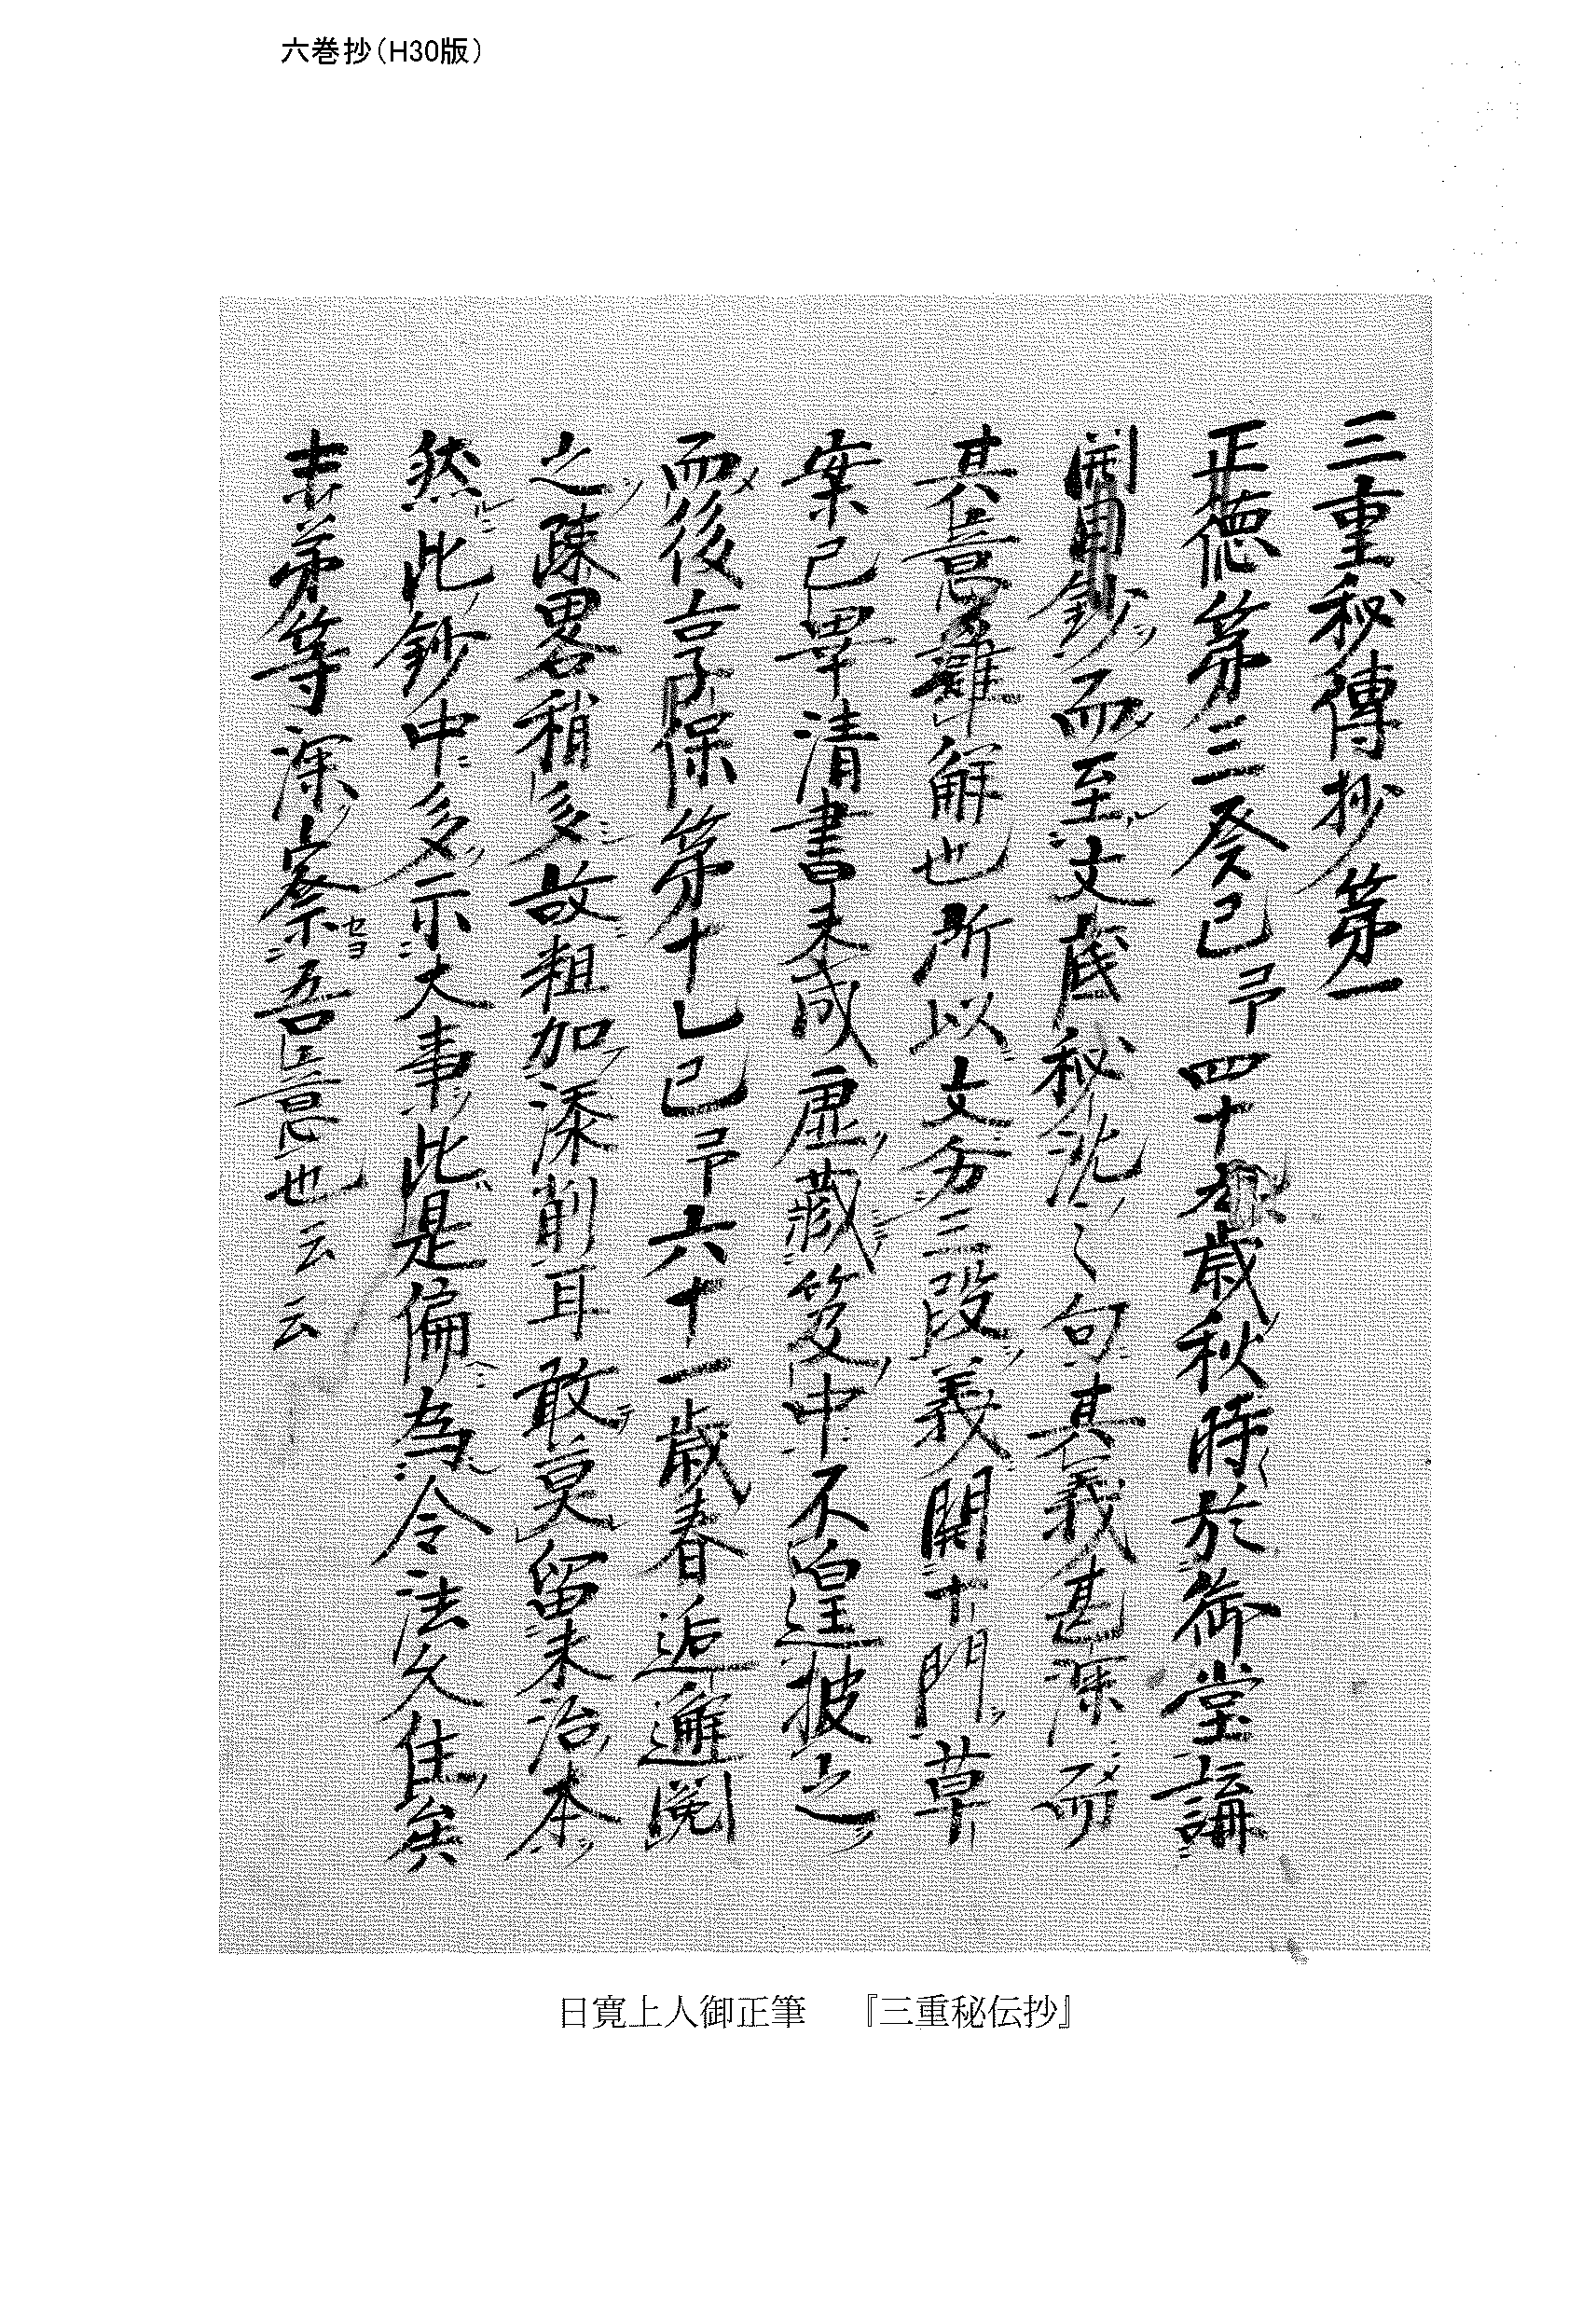 六巻抄(H30版)
三重秘傳抄第一
正徳第三癸巳予四十九歳秋時於御堂講
開目鈔ヲ而至文底秘沈之句其義甚深而
其意難解也所以文分三段義開十門草
案已畢清書未成虚蔵笈中不遑披之
而後享保第十乙巳予六十一歳春逅邂閲
之疎畧稍多故粗加添削耳敢莫留未治本
然此鈔中多示大事此是偏為令法久住矣
末弟等深察セヨ吾意也云云
日寛上人御正筆 『三重秘伝抄』